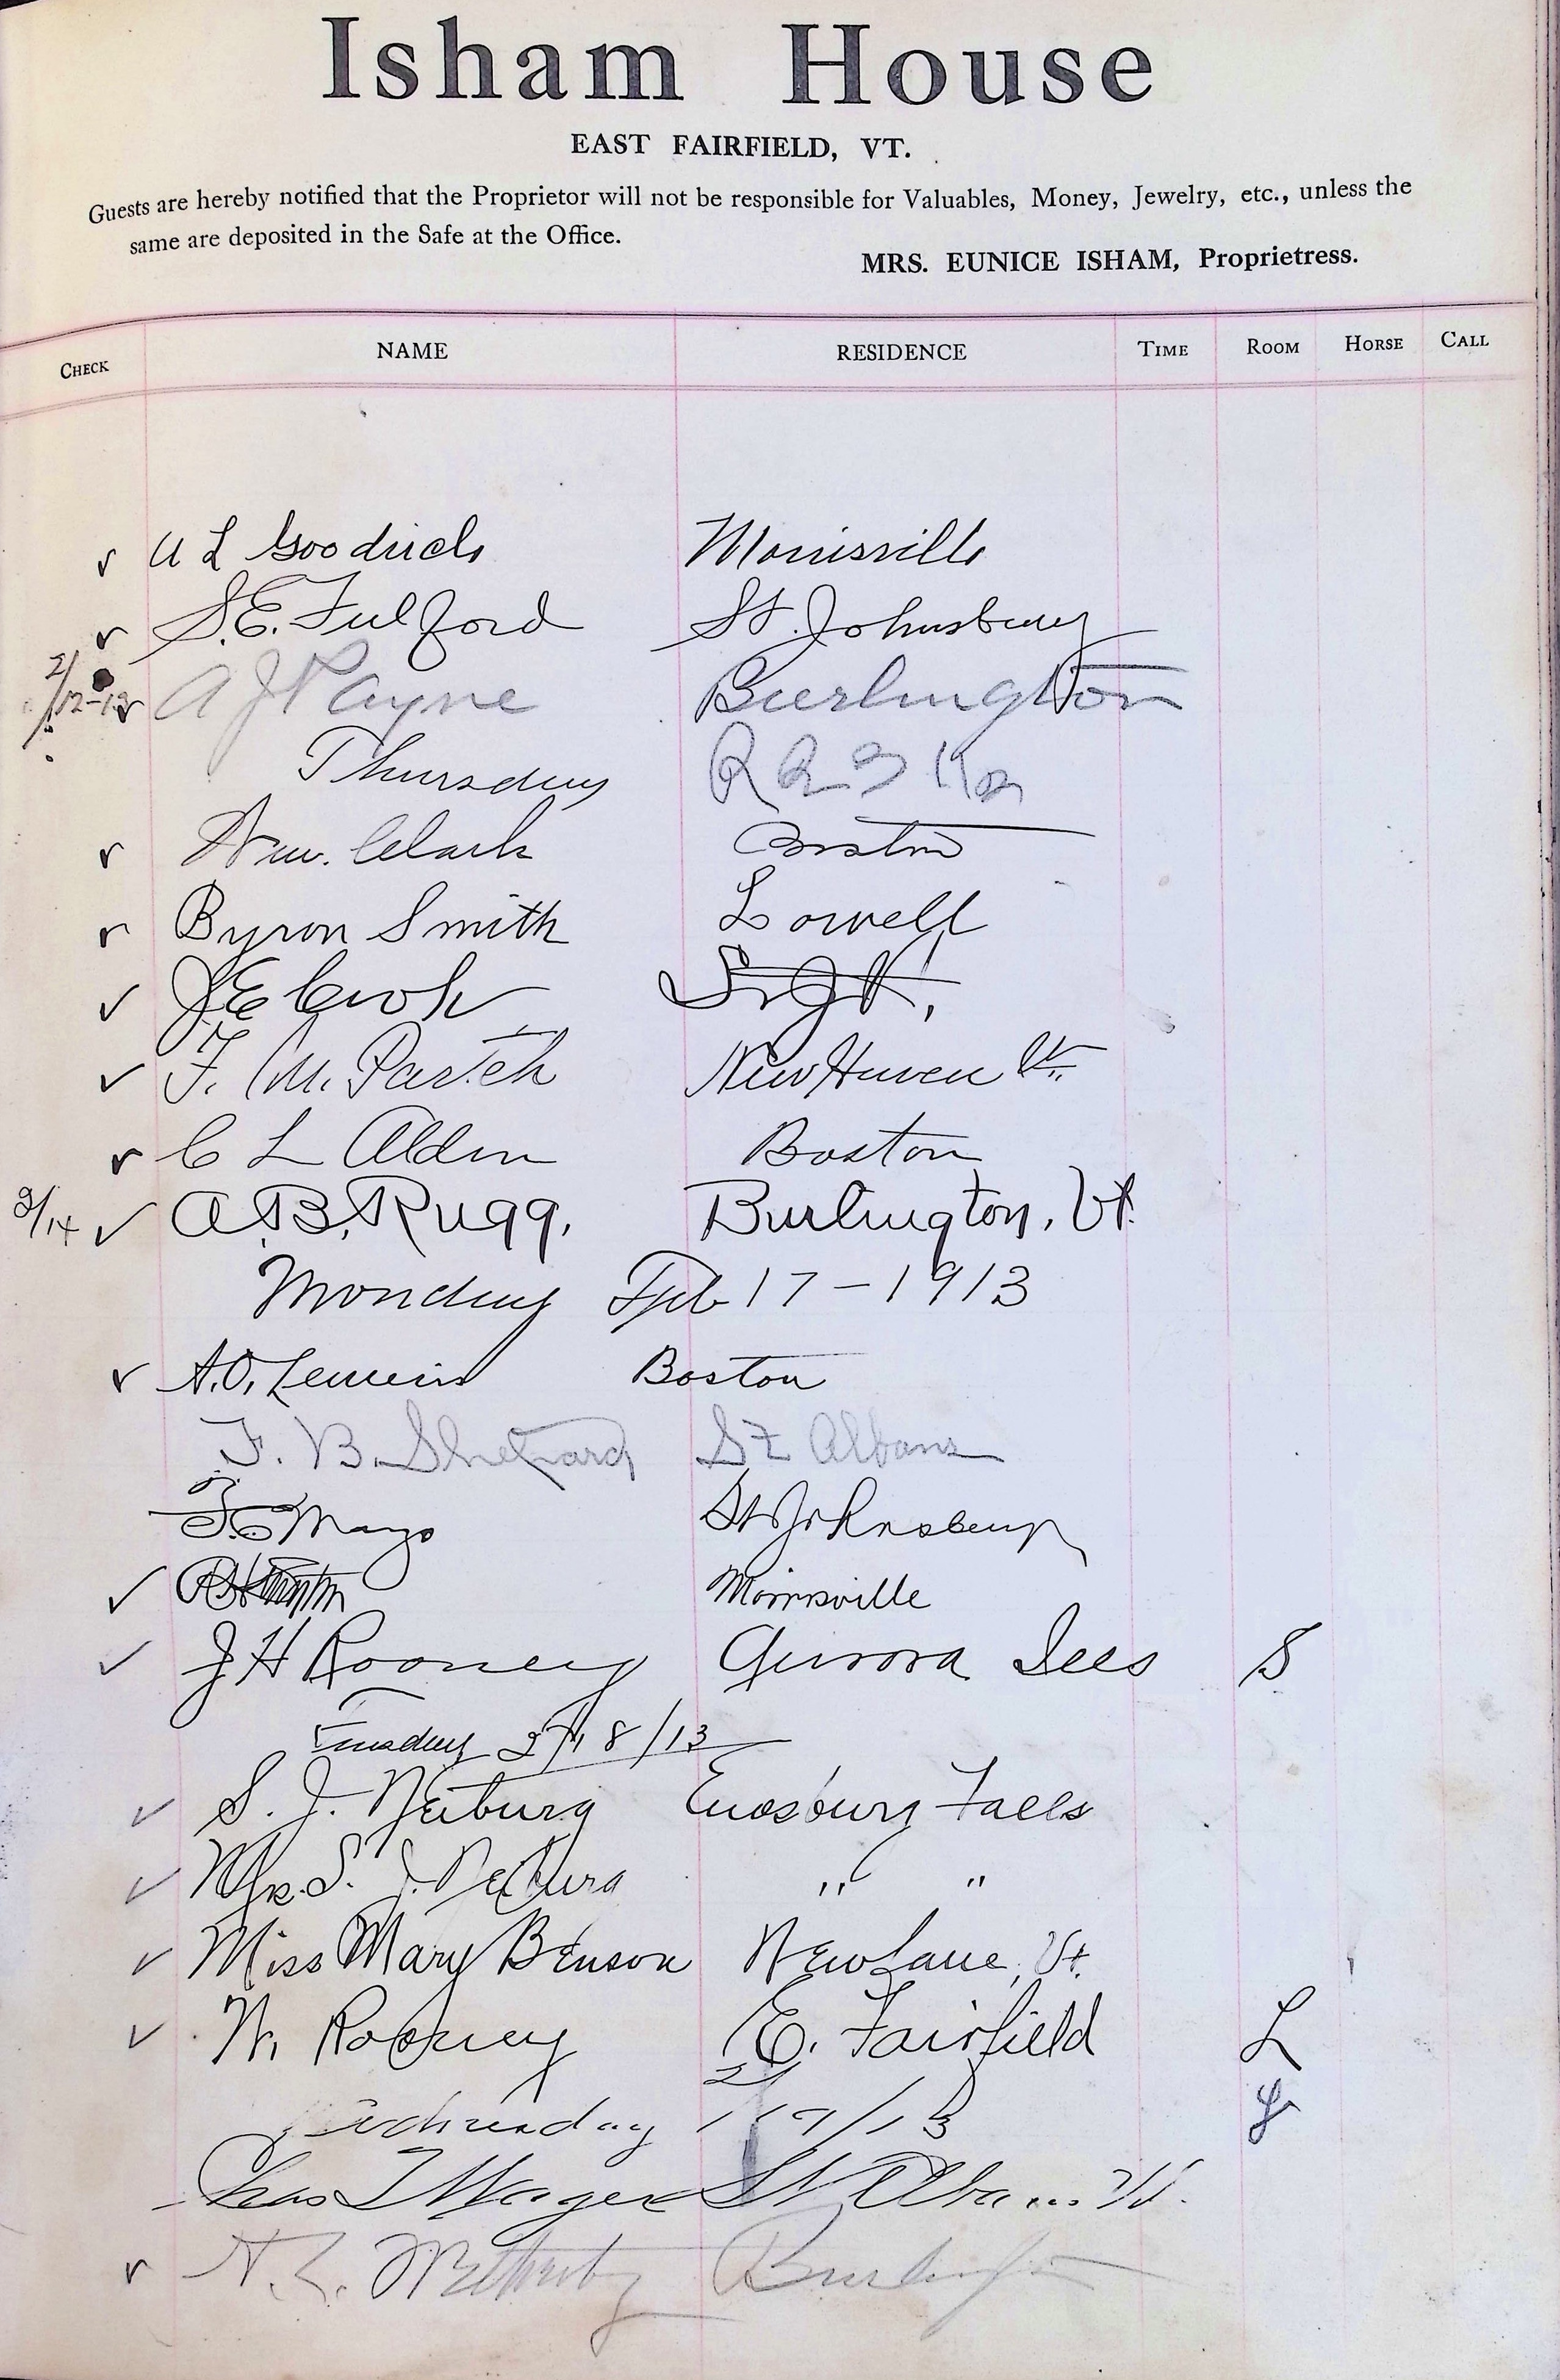 Isham House
EAST FAIRFIELD, VT.
Guests are hereby notified that the Proprietor will not be responsible for Valuables, Money, Jewelry, etc., unless the
same are deposited in the Safe at the Office.
MRS. EUNICE ISHAM, Proprietress.
CHECK NAME RESIDENCE TIME ROOM HORSE CALL
A L Goodrich Morrisville
S.E. Fulford St. Johnsbury
A J Payne Burlington
Thursday
Wm. Clark Boston
Byron Smith Lowell
J E Cook St J Vt.
F. M. Partch New Haven Vt.
C L Alden Boston
2/14 A.B. Rugg. Burlington, Vt.
Monday Feb 17-1913
A.O. Boston
F. B. Shepard St Albans
F C Mayo St Johnsbury
Morrisville
J H Rooney Aurora Ills S
Tuesday 2/18/13
S. J. Neiburg Enosburg Falls
Mrs. S. J. Neiburg " "
Miss Mary Benson Newfane, Vt.
W. Rooney E. Fairfield L
Wednesday 2/19/13
Chas St Albans Vt.
Burlington